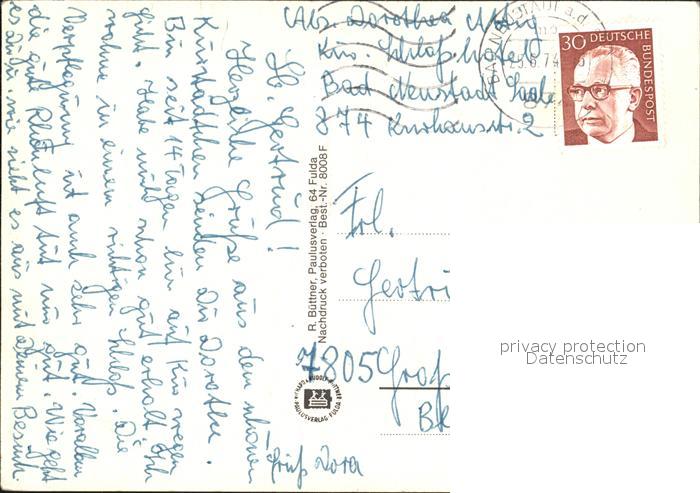 Abs. Dorothea
Kur. Schloßhotel
Bad Neustadt Saale
874 Kurhausstr. 2
BAD NEUSTADT a.d.
30 DEUTSCHE
BUNDESPOST
Lb. Gertrud!
Herzliche Grüße aus dem schönen
Kurstädtchen sendet Dir Dorothea.
Bin seit 14 Tagen hier auf Kur wegen
Gicht. Habe mich schon gut erholt. Ich
wohne in einem richtigen Schloß. Die
Verpflegung ist auch sehr gut. Vor allem
die gute Rhönluft tut mir gut. Wie geht
es Dir, wie sieht es aus mit Deinem Besuch.
Gruß Dora
R. Büttner, Paulusverlag, 64 Fulda
Nachdruck verboten · Best.-Nr. 8008 F
PAULUSVERLAG FULDA
Frl.
Gertr
7805 Groß
privacy protection
Datenschutz